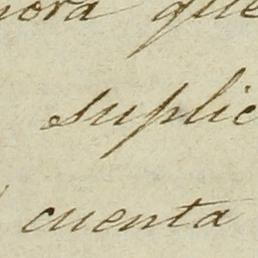 nora que
suplic
cuenta